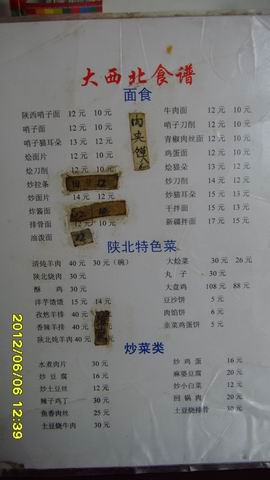 大西北食谱
面食
陕西哨子面 12元 10元
哨子面 12元 10元
哨子猫耳朵 13元 12元
烩面片 12元 10元
烩刀削 12元 10元
炒拉条
炒面片 14元 12元
炸酱面
排骨面
油泼面
肉夹馍
牛肉面 12元 10元
哨子刀削 12元 10元
青椒肉丝面 12元 10元
鸡蛋面 12元 10元
烩猫朵 13元 12元
炒刀削 14元 12元
炒猫耳朵 15元 13元
干拌面 15元 13元
新疆拌面 17元 15元
陕北特色菜
清炖羊肉 30元 30元(碗)
陕北烧肉 30元
酥鸡 30元
洋芋馇馇 15元 14元
孜然羊排 40元
香辣羊排 40元
陕北炖羊肉 40元
大烩菜 30元 26元
丸子 30元
大盘鸡 108元 88元
豆沙饼 5元
肉馅饼 6元
韭菜鸡蛋饼 5元
炒菜类
水煮肉片 30元
炒豆腐 16元
炒土豆丝 12元
辣子鸡丁 30元
鱼香肉丝 25元
土豆烧牛肉 30元
炒鸡蛋 16元
麻婆豆腐 20元
炒小白菜 12元
回锅肉 20元
土豆烧排骨 30元
2012/06/06 12:39